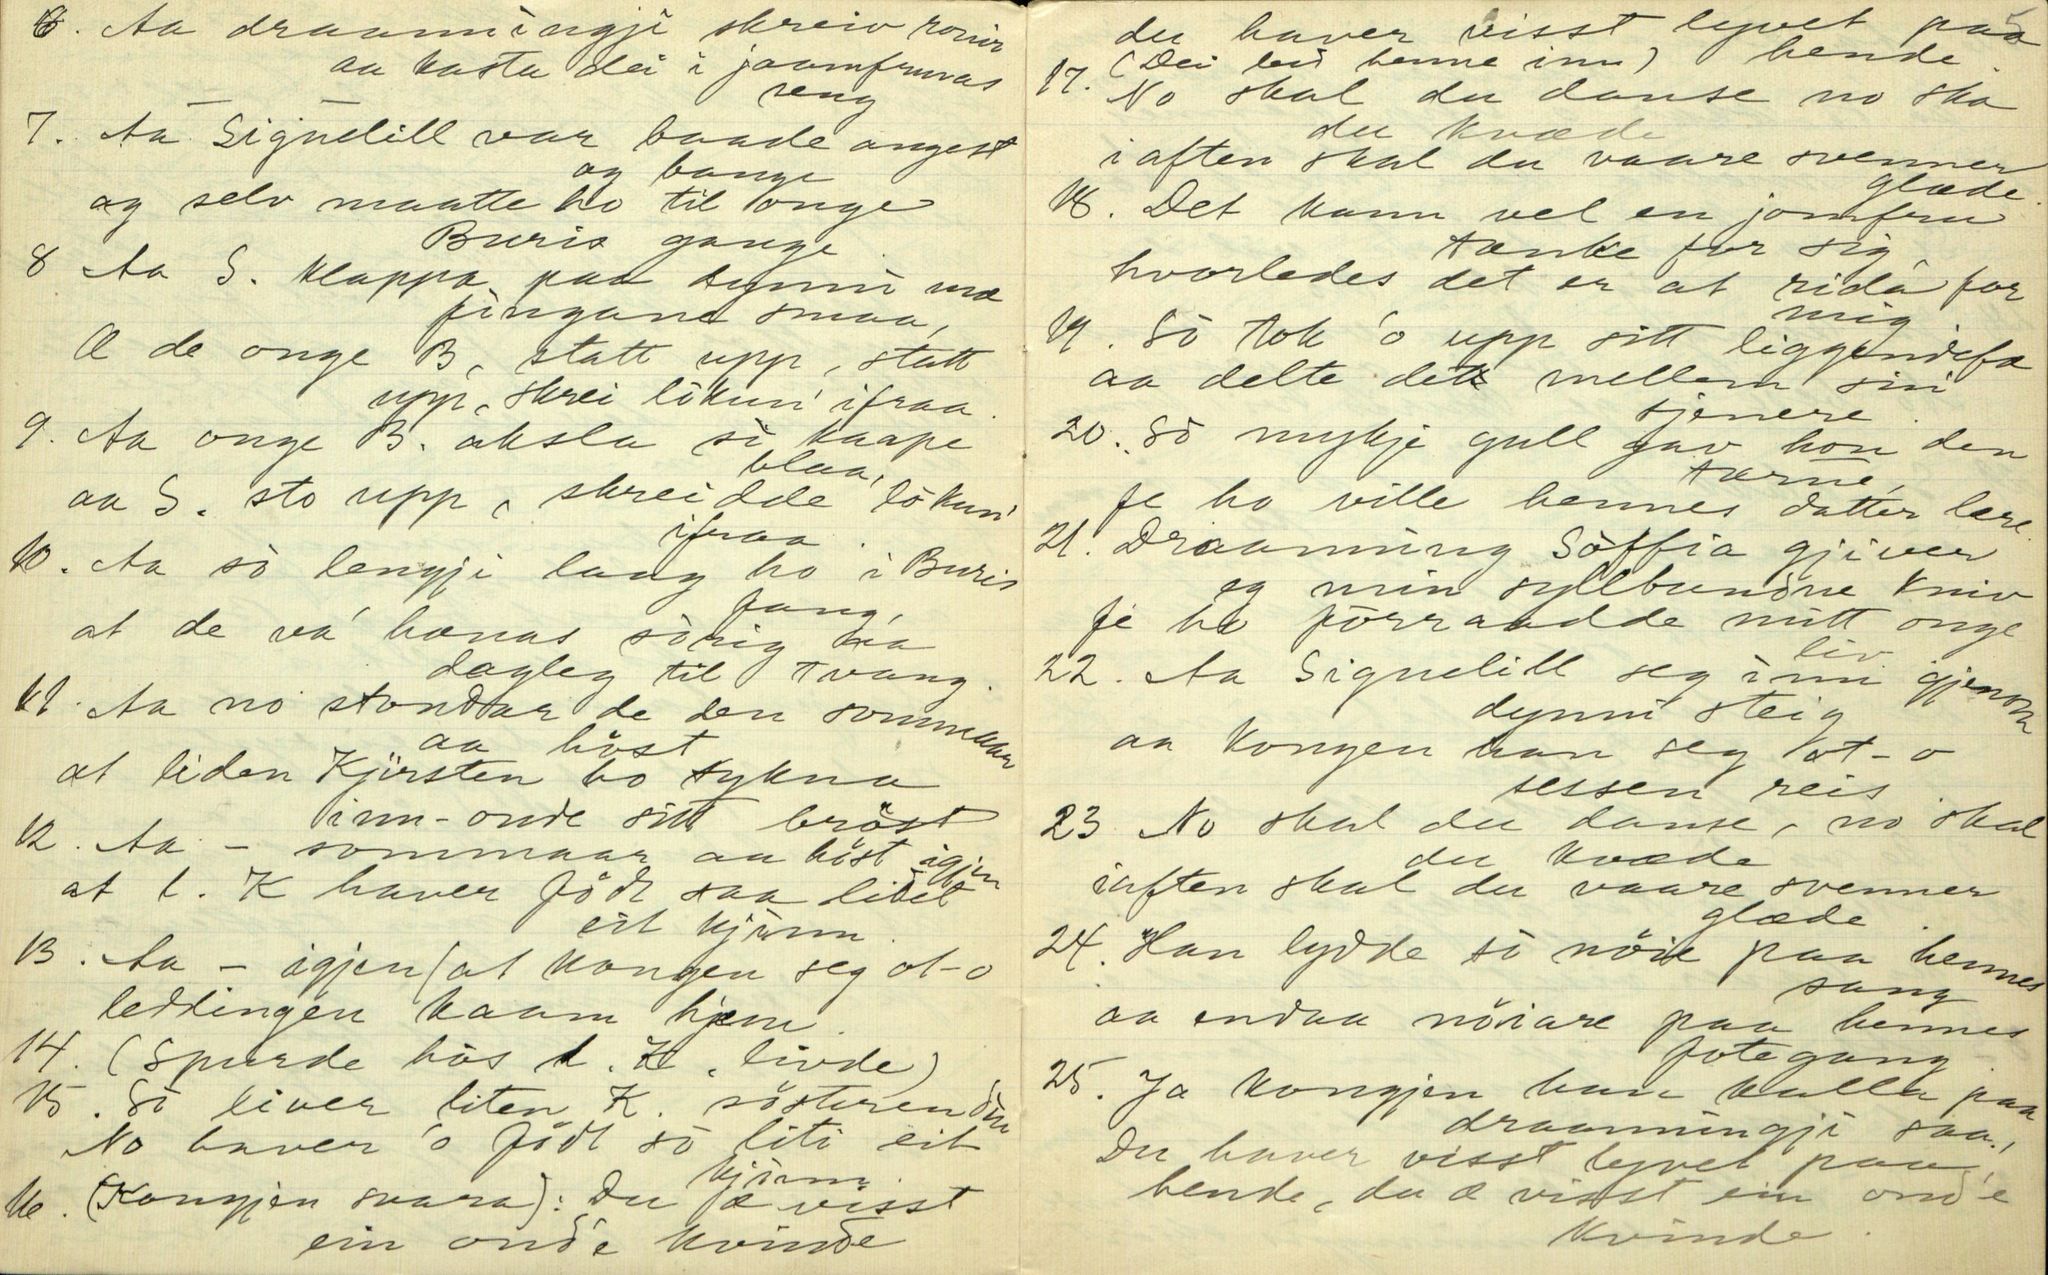 6. Aa draamningji skreiv ronir
aa kasta dei i jaamfruvas
seng
7. Aa Signelill var baade angest
og bange
og selv maatte ho til onge
Buris gange
8 Aa S. klappa paa dynni mæ
fingane smaa,
Æ de onge B, statt upp, statt
upp, skrei lökun' ifraa.
9. Aa onge B. aksla si kaape
blaa,
aa S. sto upp, skreidde lökun'
ifraa.
10. Aa sò lengji laag ho i Buris
fang,
at de va' hænas sörig
dagleg til tvang.
11. Aa no stondar de den sommaar
aa höst
at liden Kjirsten ho sykna
inn-onde sitt bröst
12. Aa – sommaar aa höst igjen
at l. K haver födt saa lidet
eit kjinn.
13. Aa – igjen (at kongen seg ot-o
leddingen kaam hjem.
14. (Spurde hös l. K. livde)
15. Sò liver liten K. sösteren din
No haver 'o födt sò liti eit
kjinn.
16. (Kongjen svara): Du æ visst
ein onde kvinde
du haver visst lyvet paa
hende.
17. (Dei lei henne inn)
No skal du danse no ska
du kvæde
i aften skal du vaare svenner
glæde.
18. Det kann vel en jomfru
tænke for sig,
hvorledes det er at rida for
mig
19. Sò tok 'o upp sitt liggendefæ
aa delte det mellem sin
tjenere
20. Sò mykje gull gav hon den
tærne,
fe ho ville hennes datter lære.
21. Draamning Söffia gjiver
eg min syllbundne kniv
fe ho förraadde mitt onge
liv.
22. Aa Signelill seg inn igjenom
dynni steig
aa kongen han seg ot-o
sessen reis
23 No skal du danse, no skal
du kvæde
iaften skal du vaare svenner
glæde.
24. Han lydde sò nöie paa hennes
sang
aa endaa nöiare paa hennes
fotegang
25. Ja kongjen han kalla paa
draamningji saa,
Du haver visst lyvet paa
hende, du æ visst ein onde
kvinde.